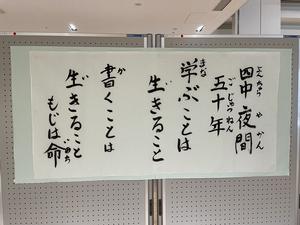 四中夜間
五十年
学ぶことは
生きること
書くことは
生きること
もじは命